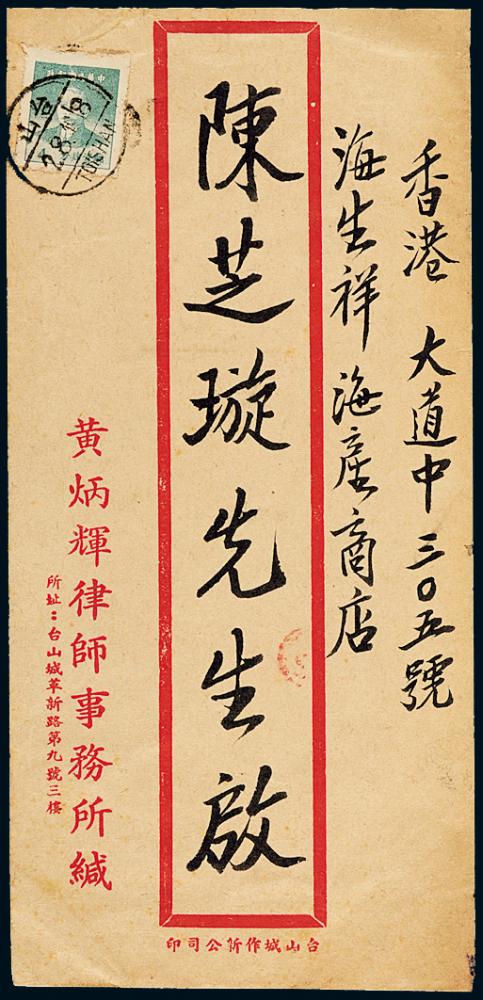 香港 大道中三〇五號
海生祥海產商店
陳芝璇先生啟
黃炳輝律師事務所緘
所址：台山城革新路第九號三樓
台山城作新公司印
台山
TOISHAN